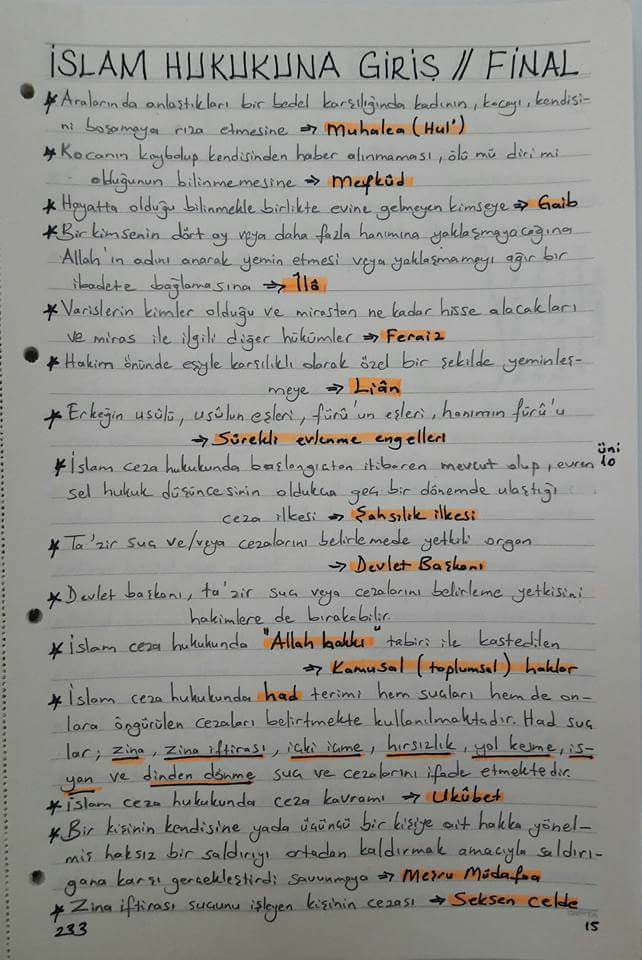 İSLAM HUKUKUNA GİRİŞ // FİNAL
* Aralarında anlaştıkları bir bedel karşılığında kadının, kocayı, kendisi-
ni boşamaya rıza etmesine → Muhalea (Hul')
* Kocanın kaybolup kendisinden haber alınmaması, ölü mü diri mi
olduğunun bilinmemesine → Mefkûd
* Hayatta olduğu bilinmekle birlikte evine gelmeyen kimseye → Gaib
* Bir kimsenin dört ay veya daha fazla hanımına yaklaşmayacağına
Allah'ın adını anarak yemin etmesi veya yaklaşmamayı ağır bir
ibadete bağlamasına → Îlâ
* Varislerin kimler olduğu ve mirastan ne kadar hisse alacakları
ve miras ile ilgili diğer hükümler → Feraiz
* Hakim önünde eşiyle karşılıklı olarak özel bir şekilde yeminleş-
meye → Liân
* Erkeğin usûlü, usûlun eşleri, fürû'un eşleri, hanımın fürû'u
→ Sürekli evlenme engelleri
üni
10
* İslam ceza hukukunda başlangıçtan itibaren mevcut olup, evren
sel hukuk düşüncesinin oldukca geç bir dönemde ulaştığı
ceza ilkesi → Şahsilik ilkesi
* Ta'zir suç ve/veya cezalarını belirlemede yetkili organ
→ Devlet Başkanı
* Devlet başkanı, ta'zir suç veya cezaları belirleme yetkisini
hakimlere de bırakabilir.
* İslam ceza hukukunda "Allah hakkı" tabiri ile kastedilen
→ Kamusal (toplumsal) haklar
* İslam ceza hukukunda had terimi hem suçları hem de on-
lara öngürülen cezaları belirtmekte kullanılmaktadır. Had suç
lar; zina, zina iftirası, içki içme, hırsızlık, yol kesme, is-
yan ve dinden dönme suç ve cezalarını ifade etmektedir.
* İslam ceza hukukunda ceza kavramı → Ukûbet
* Bir kişinin kendisine yada üçüncü bir kişiye ait hakka yönel-
miş haksız bir saldırıyı ortadan kaldırmak amacıyla saldırı-
gana karşı gerçekleştirdi savunmaya → Meşru Müdafaa
* Zina iftirası suçunu işleyen kişinin cezası → Seksen celde
233
15